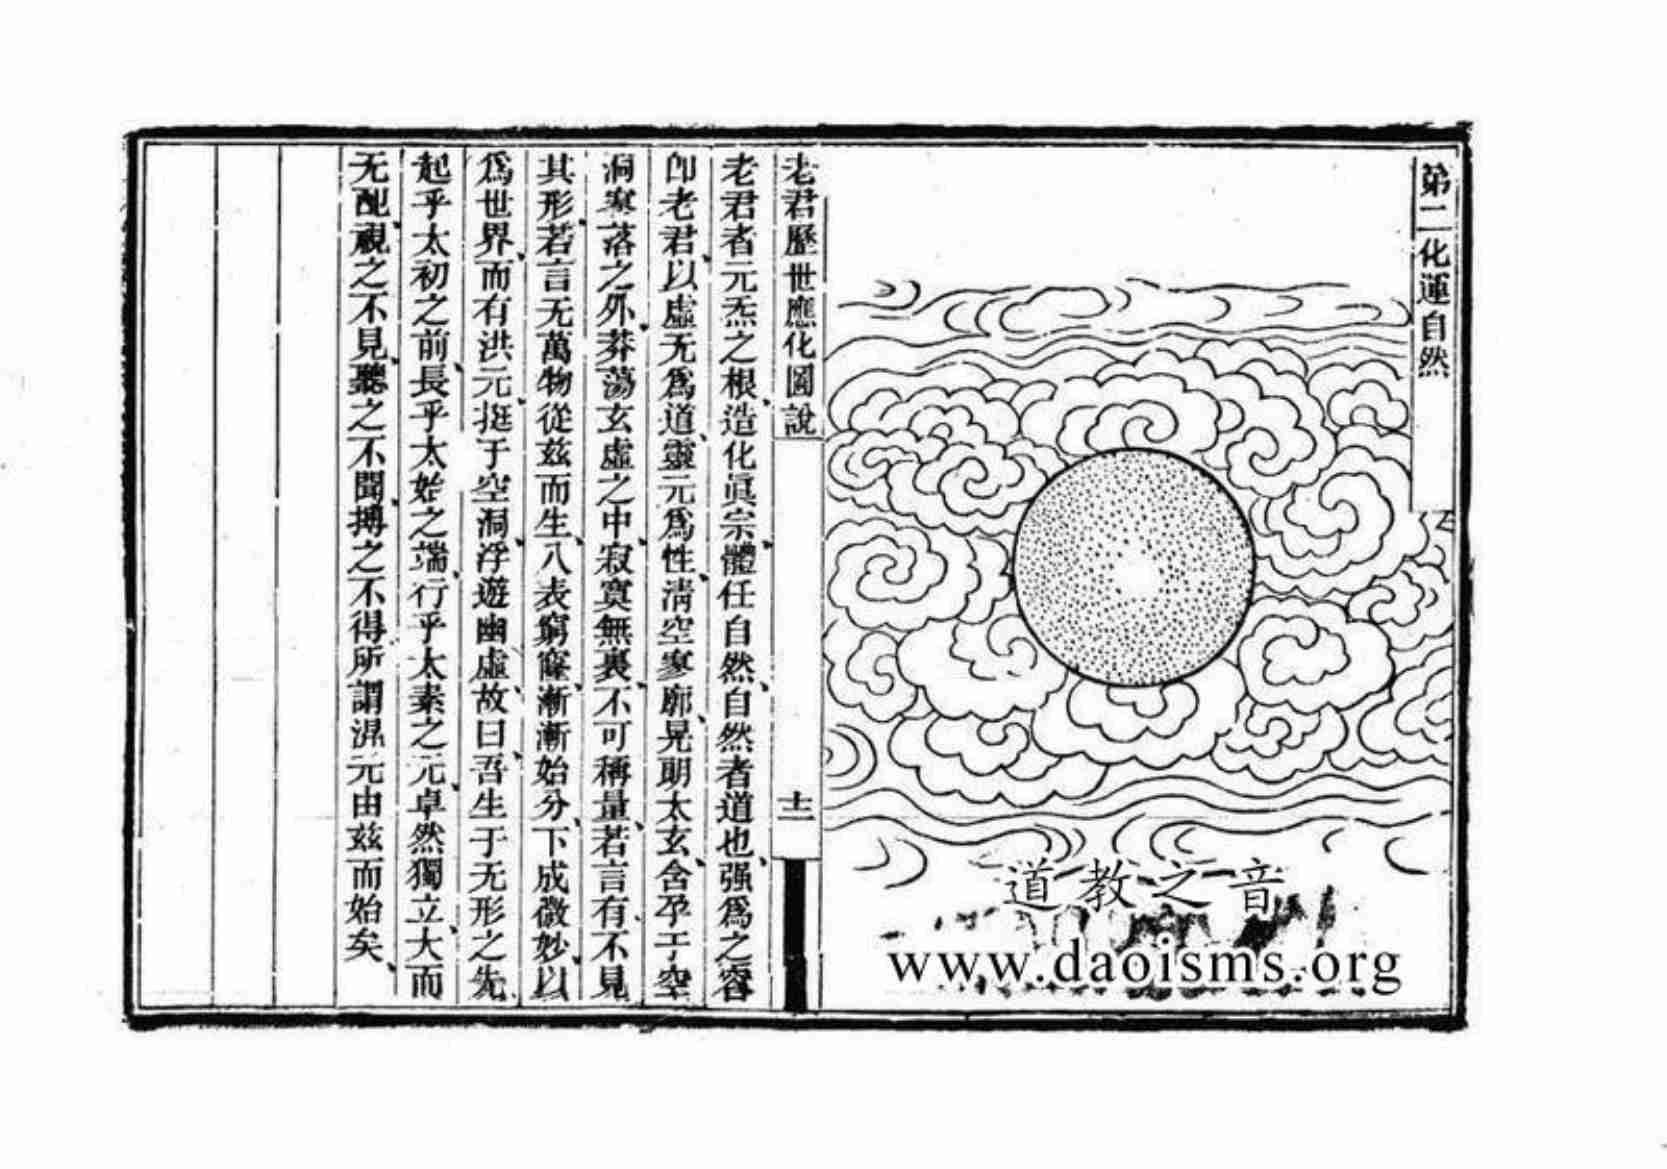 第二化運自然
道教之音
www.daoisms.org
老君歷世應化圖說
十二
老君者元炁之根、造化眞宗、體任自然、自然者道也、强爲之容
卽老君、以虛无爲道、靈元爲性、淸空寥廓、晃朗太玄、含孕于空
洞寥落之外、莽蕩玄虛之中、寂寞無裏、不可稱量、若言有、不見
其形、若言无、萬物從兹而生、八表窮窿、漸漸始分、下成微妙、以
爲世界、而有洪元、挺于空洞、浮遊幽虛、故曰、吾生于无形之先、
起乎太初之前、長乎太始之端、行乎太素之元、卓然獨立、大而
无配、視之不見、聽之不聞、搏之不得、所謂混元由兹而始矣、